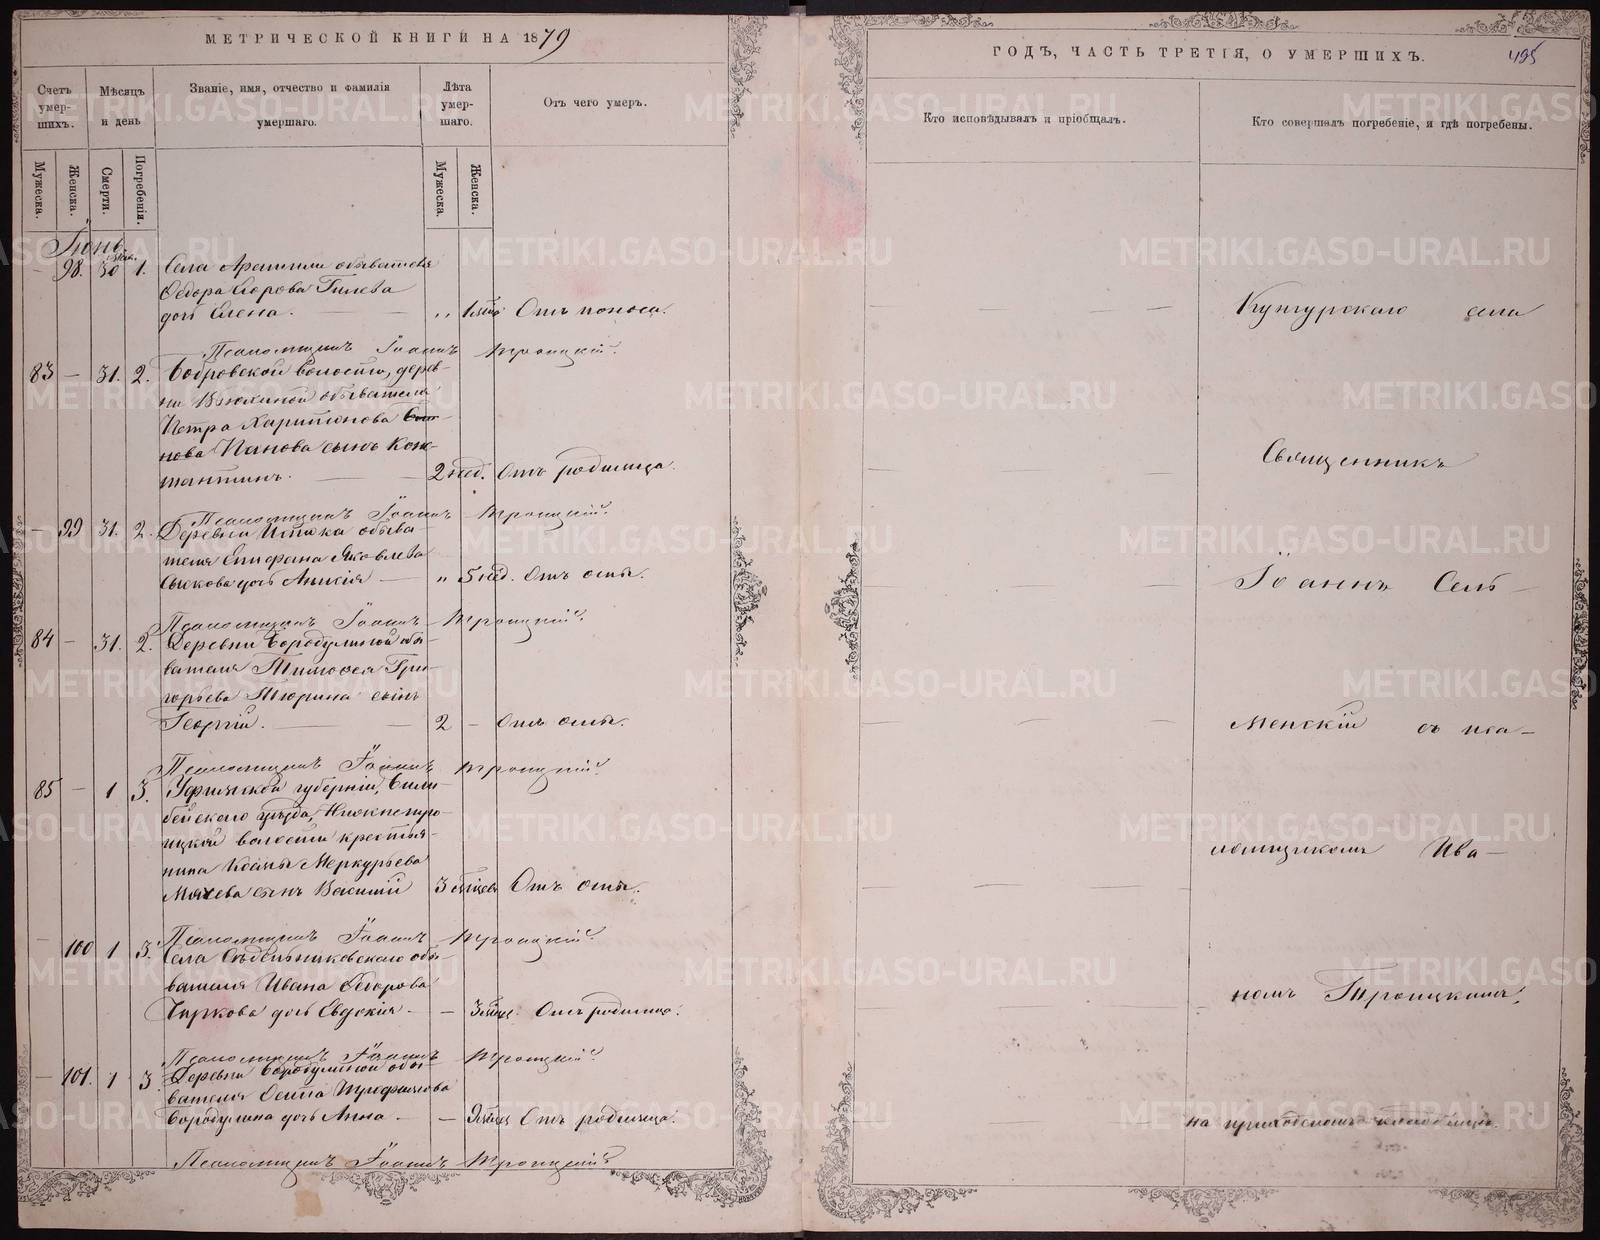 МЕТРИЧЕСКОЙ КНИГИ НА 1879
ГОДЪ, ЧАСТЬ ТРЕТІЯ, О УМЕРШИХЪ.
495
Счетъ умер-шихъ.
Мѣсяцъ и день
Званіе, имя, отчество и фамилія умершаго.
Лѣта умер-шаго.
Отъ чего умеръ.
Кто исповѣдывалъ и пріобщалъ.
Кто совершалъ погребеніе, и гдѣ погребены.
Мужеска.
Женска.
Смерти.
Погребенія.
Мужеска.
Женска.
Іюнь
98. 30 1. Села Арамили обывателя
Ѳедора Егорова Гилева
дочь Елена. 1 Отъ поноса.
Псаломщикъ Іоаннъ Троицкій.
83 — 31. 2. Бобровской волости, дерев-
ни Вьюхиной обывателя
Петра Харитонова
Панова сынъ Кон-
стантинъ. 2 нед. Отъ родимца.
Псаломщикъ Іоаннъ Троицкій.
— 99 31. 2. Деревни Истока обыва-
теля Епифана Яковлева
Сыскова дочь Анисія — 5 нед. Отъ оспы.
Псаломщикъ Іоаннъ Троицкій.
84 — 31. 2. Деревни Бородулиной обы-
вателя Тимоѳея Гри-
горьева Тюрина сынъ
Георгій. 2 — Отъ оспы.
Псаломщикъ Іоаннъ Троицкій.
85 — 1 3. Уфимской губерніи,
уѣзда,
волости крестья-
нина Козмы Меркурьева
сынъ Василій 3 Отъ оспы.
Псаломщикъ Іоаннъ Троицкій.
— 100 1 3. Села обы-
вателя Ивана Ѳедорова
Чиркова дочь Евдокія — 3 Отъ родимца.
Псаломщикъ Іоаннъ Троицкій.
— 101. 1 3. Деревни Бородулиной обы-
вателя Осипа Трофимова
Бородулина дочь Анна — Отъ родимца.
Псаломщикъ Іоаннъ Троицкій
села
Священникъ
Іоаннъ Сель-
менскій съ пса-
ломщикомъ Ива-
номъ Троицкимъ,
на приходскомъ кладбищѣ.
METRIKI.GASO-URAL.RU